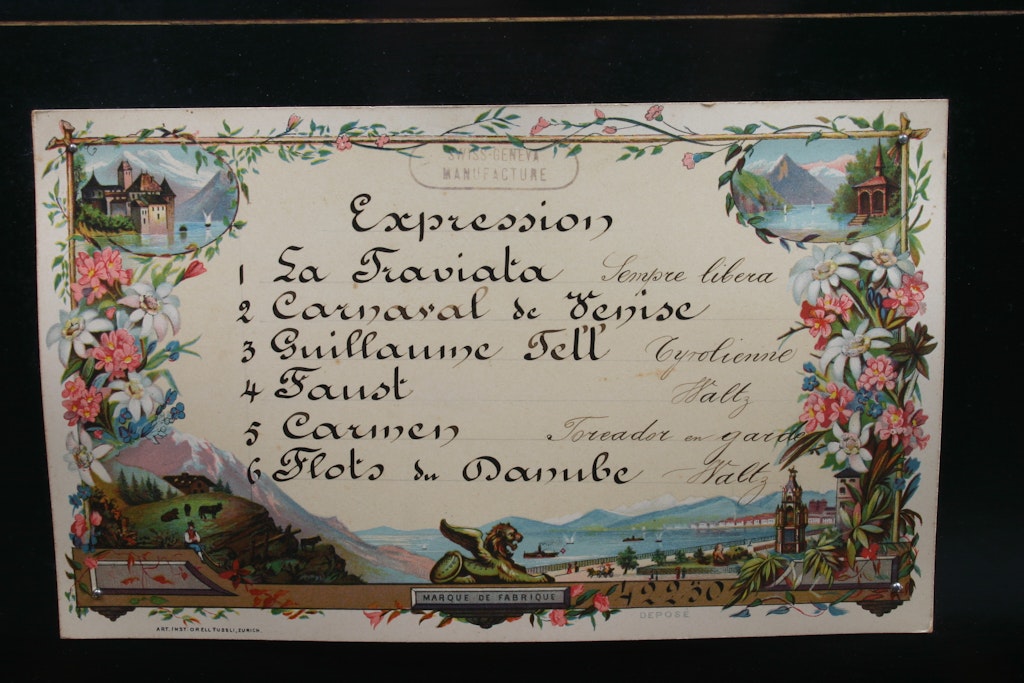 SWISS-GENEVA
MANUFACTURE
Expression
1 La Traviata Sempre libera
2 Carnaval de Venise
3 Guillaume Tell Tyrolienne
4 Faust Waltz
5 Carmen Toreador en garde
6 Flots du Danube Waltz
MARQUE DE FABRIQUE
42250
DEPOSÉ
ART. INST. ORELL FUSSLI, ZURICH.